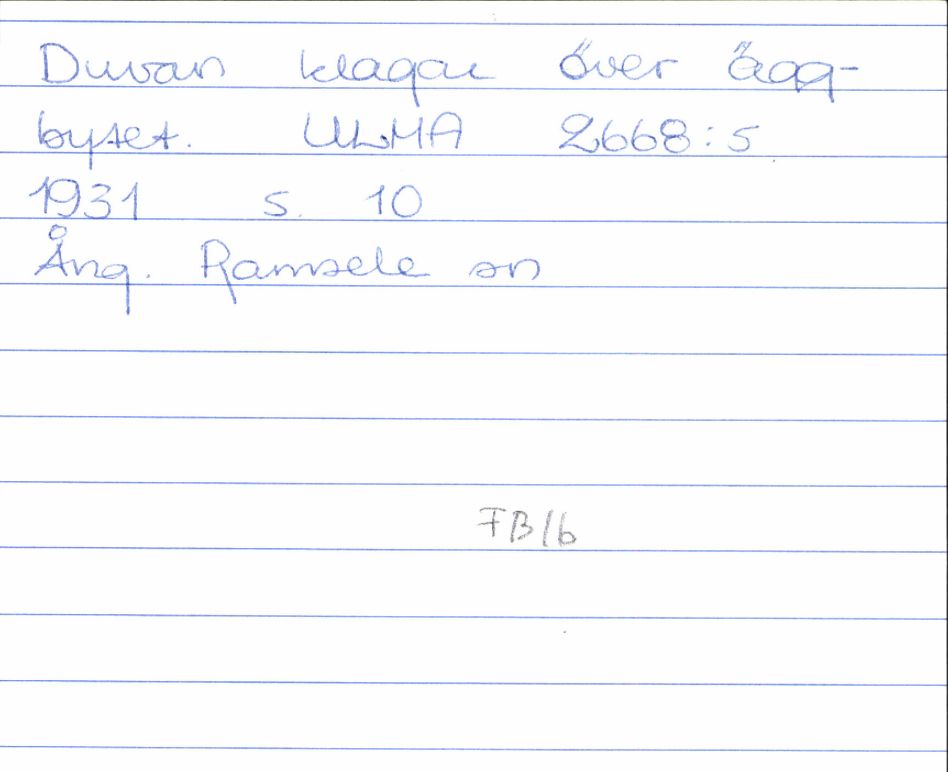 Duvan klagar över ägg-
bytet. ULMA 2668:5
1931 s. 10
Ång. Ramsele sn
FB/b